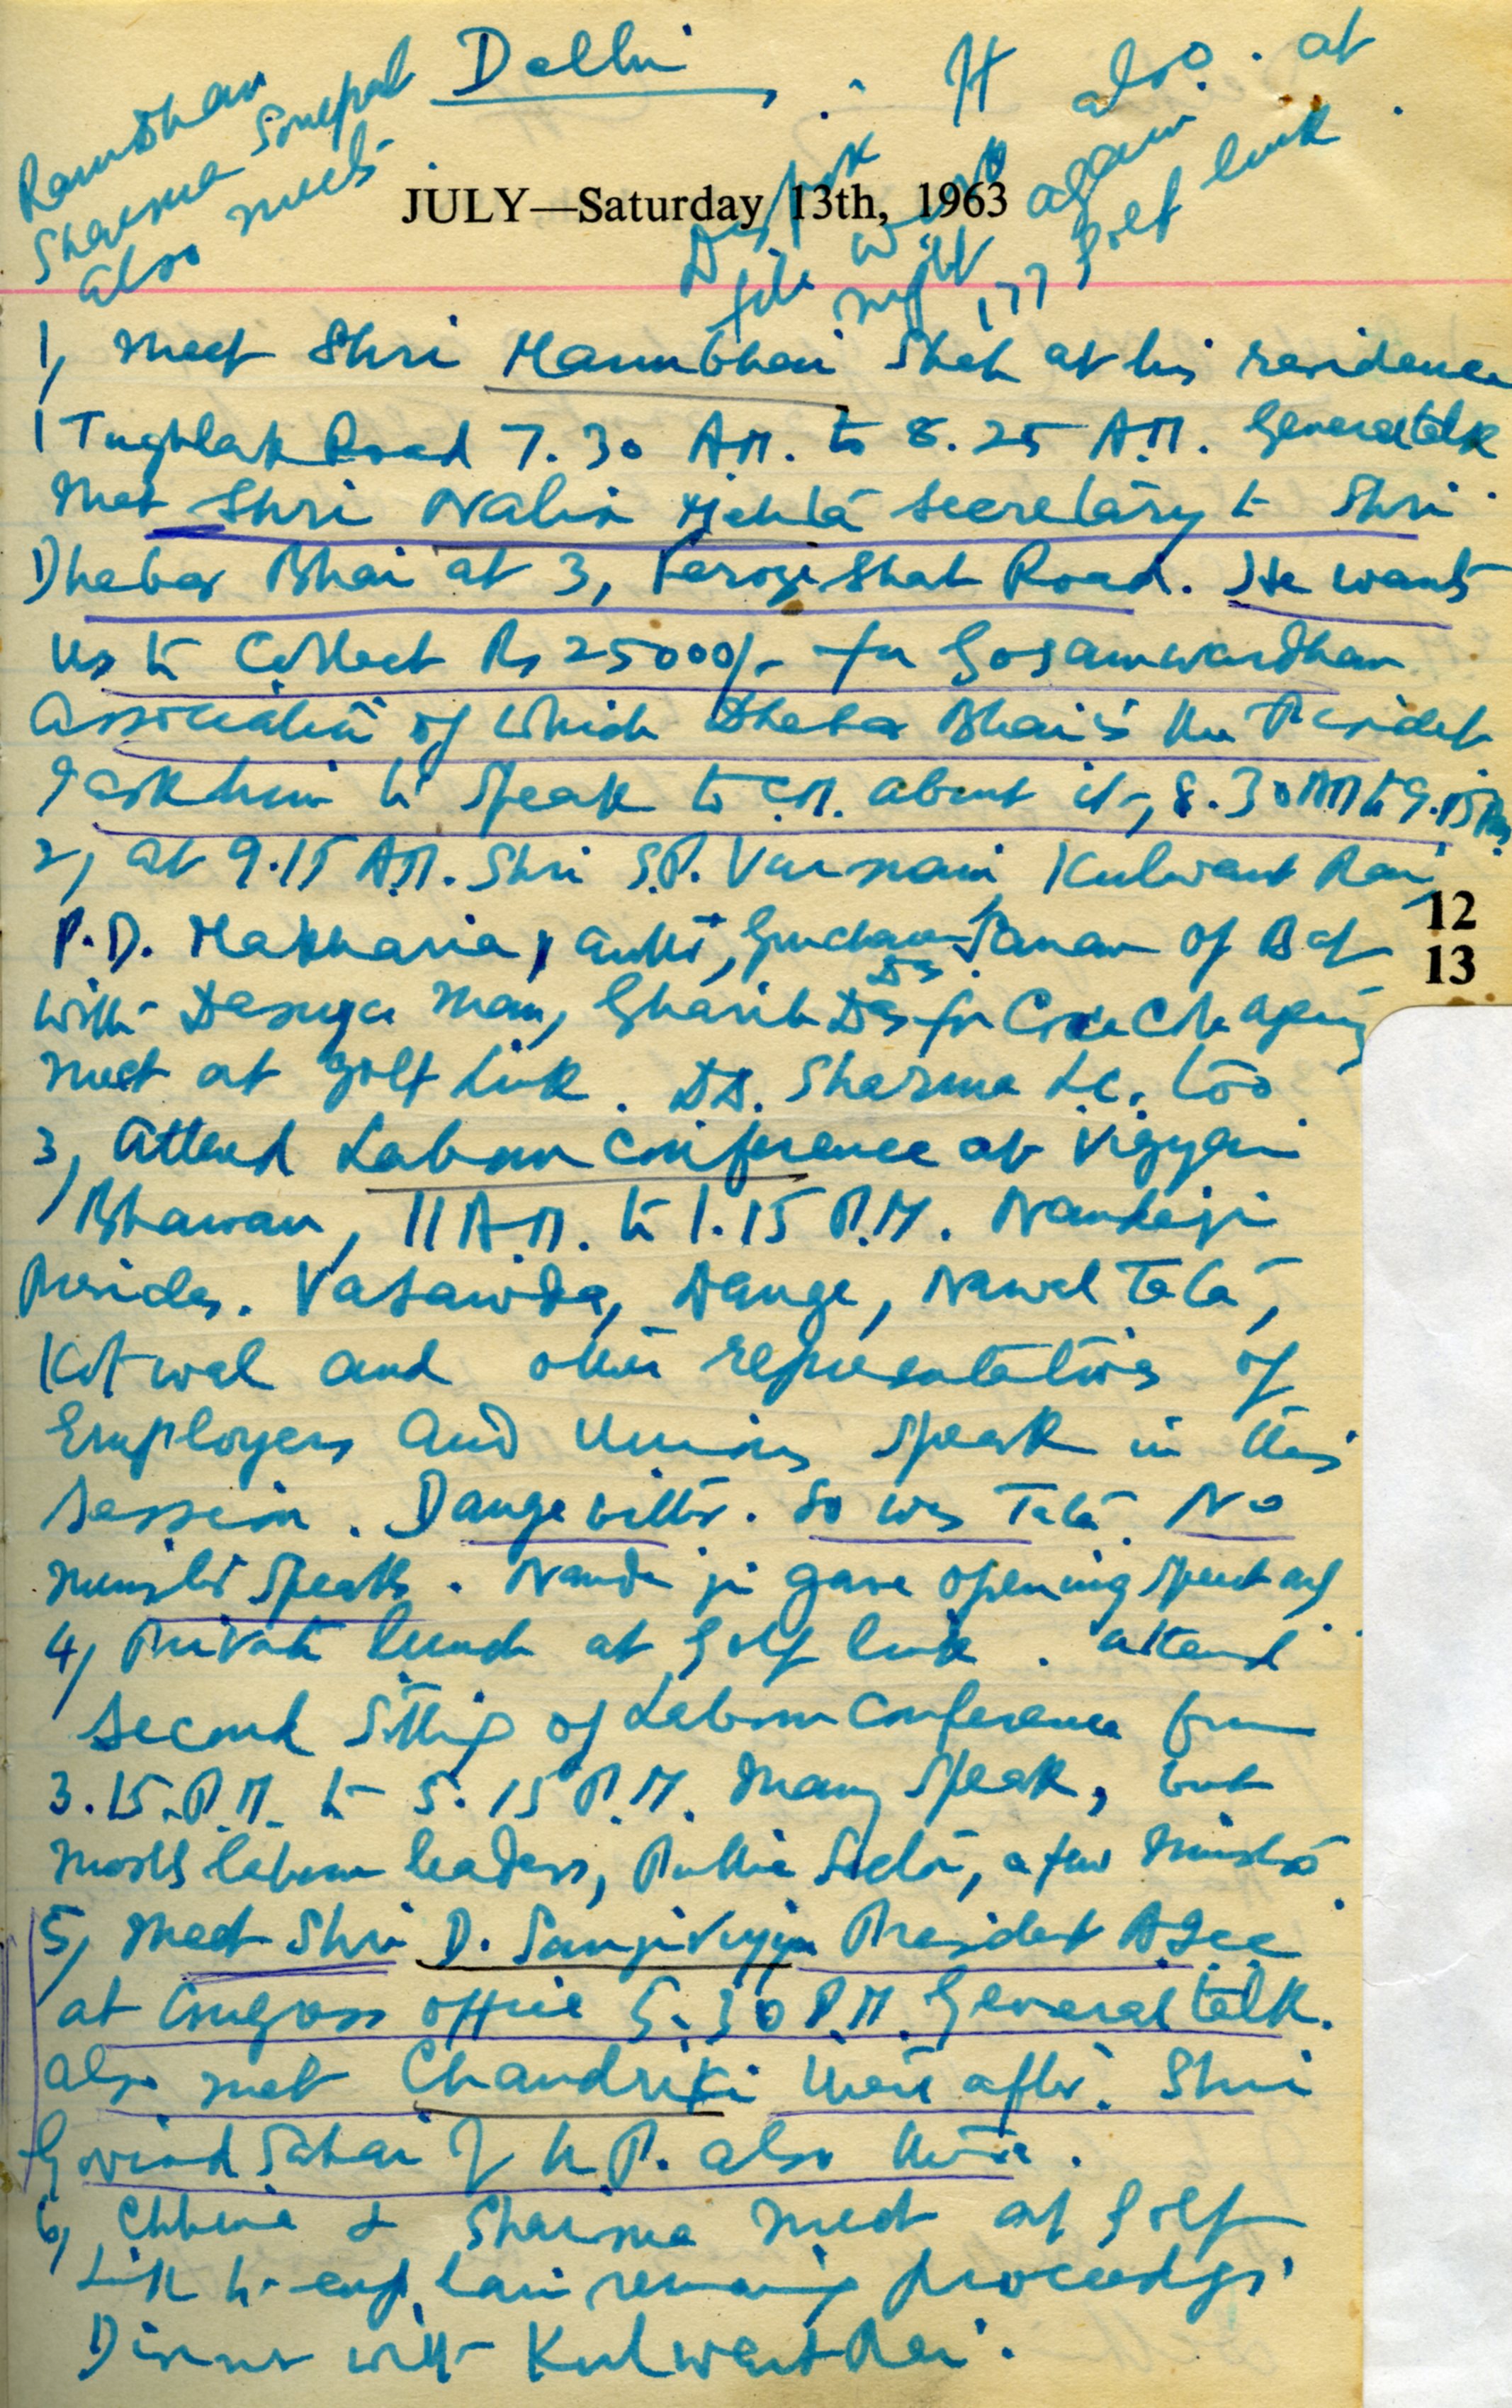 Delhi
Ramdhan
Sharma Sonepat
also meets
H also at
Despatch work again
file night 177 Golf Link
JULY—Saturday 13th, 1963
1, Meet Shri Manubhai Shah at his residence
1 Tughlak Road 7.30 A.M. to 8.25 A.M. General talk
Met Shri Nalin Mehta Secretary to Shri
Dhebar Bhai at 3, Feroze Shah Road. He wants
us to Collect Rs 25000/- for Gosamwardhan
Association of which Dhebar Bhai is the President
I ask him to speak to C.M. about it, 8.30 AM to 9.15 AM
2, at 9.15 A.M. Shri S.P. Virmani, Kulwant Rai,
P.D. Makharia, Gurcharan of
with Dasuya man, Gharib Das for
meet at Golf Link. D.D. Sharma L.C. too
3, Attend Labour Conference at Vigyan
Bhawan, 11 A.M. to 1.15 P.M. Nandaji
Presides. Vasavada, Dange, Naval Tata,
Kotwal and other representatives of
Employers and Unions speak in this
Session. Dange bitter. So was Tata. No
minister speaks. Nanda ji gave opening speech only
4, Private lunch at Golf Link. Attend
Second Sitting of Labour Conference from
3.15 P.M. to 5.15 P.M. Many speak, but
mostly labour leaders, Public Sector, a few Ministers
5, Meet Shri D. Sanjivayya President AICC
at Congress office 5.30 P.M. General talk.
Also met Chandriki there after. Shri
Govind Sahai of U.P. also there.
6, Chhina & Sharma meet at Golf
Link to explain remaining proceedings
Dinner with Kulwant Rai.
12
13